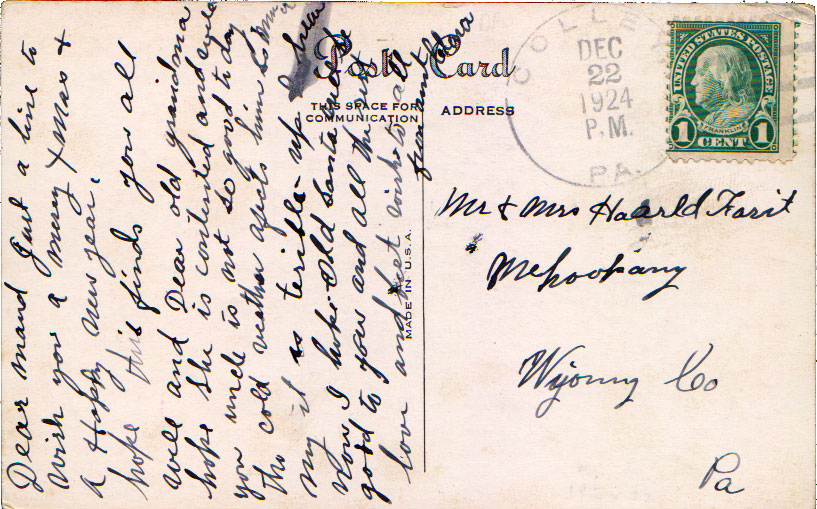 Post Card
THIS SPACE FOR
COMMUNICATION
ADDRESS
MADE IN U.S.A.
DEC
22
1924
P.M.
PA.
UNITED STATES POSTAGE
FRANKLIN
1 CENT 1
Mr & Mrs Haarld Farit
Mehoopany
Wyoming Co
Pa
Dear maud Just a line to
wish you a merry Xmas &
a Happy new year.
hope this finds you all
well and Dear old grandma
hope she is contented and
you uncle is not so good to day
the cold weather afects him so
my it is terible up here
now I hope old santa will be
good to you and all the rest
love and best wishes to all
from aunt